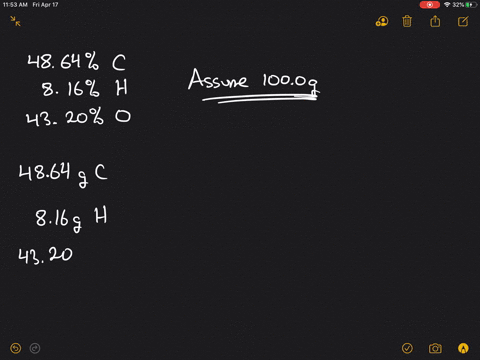 11:53 AM Fri Apr 17
32%
48.64% C
8.16% H
43.20% O
Assume 100.0g
48.64 g C
8.16g H
43.20